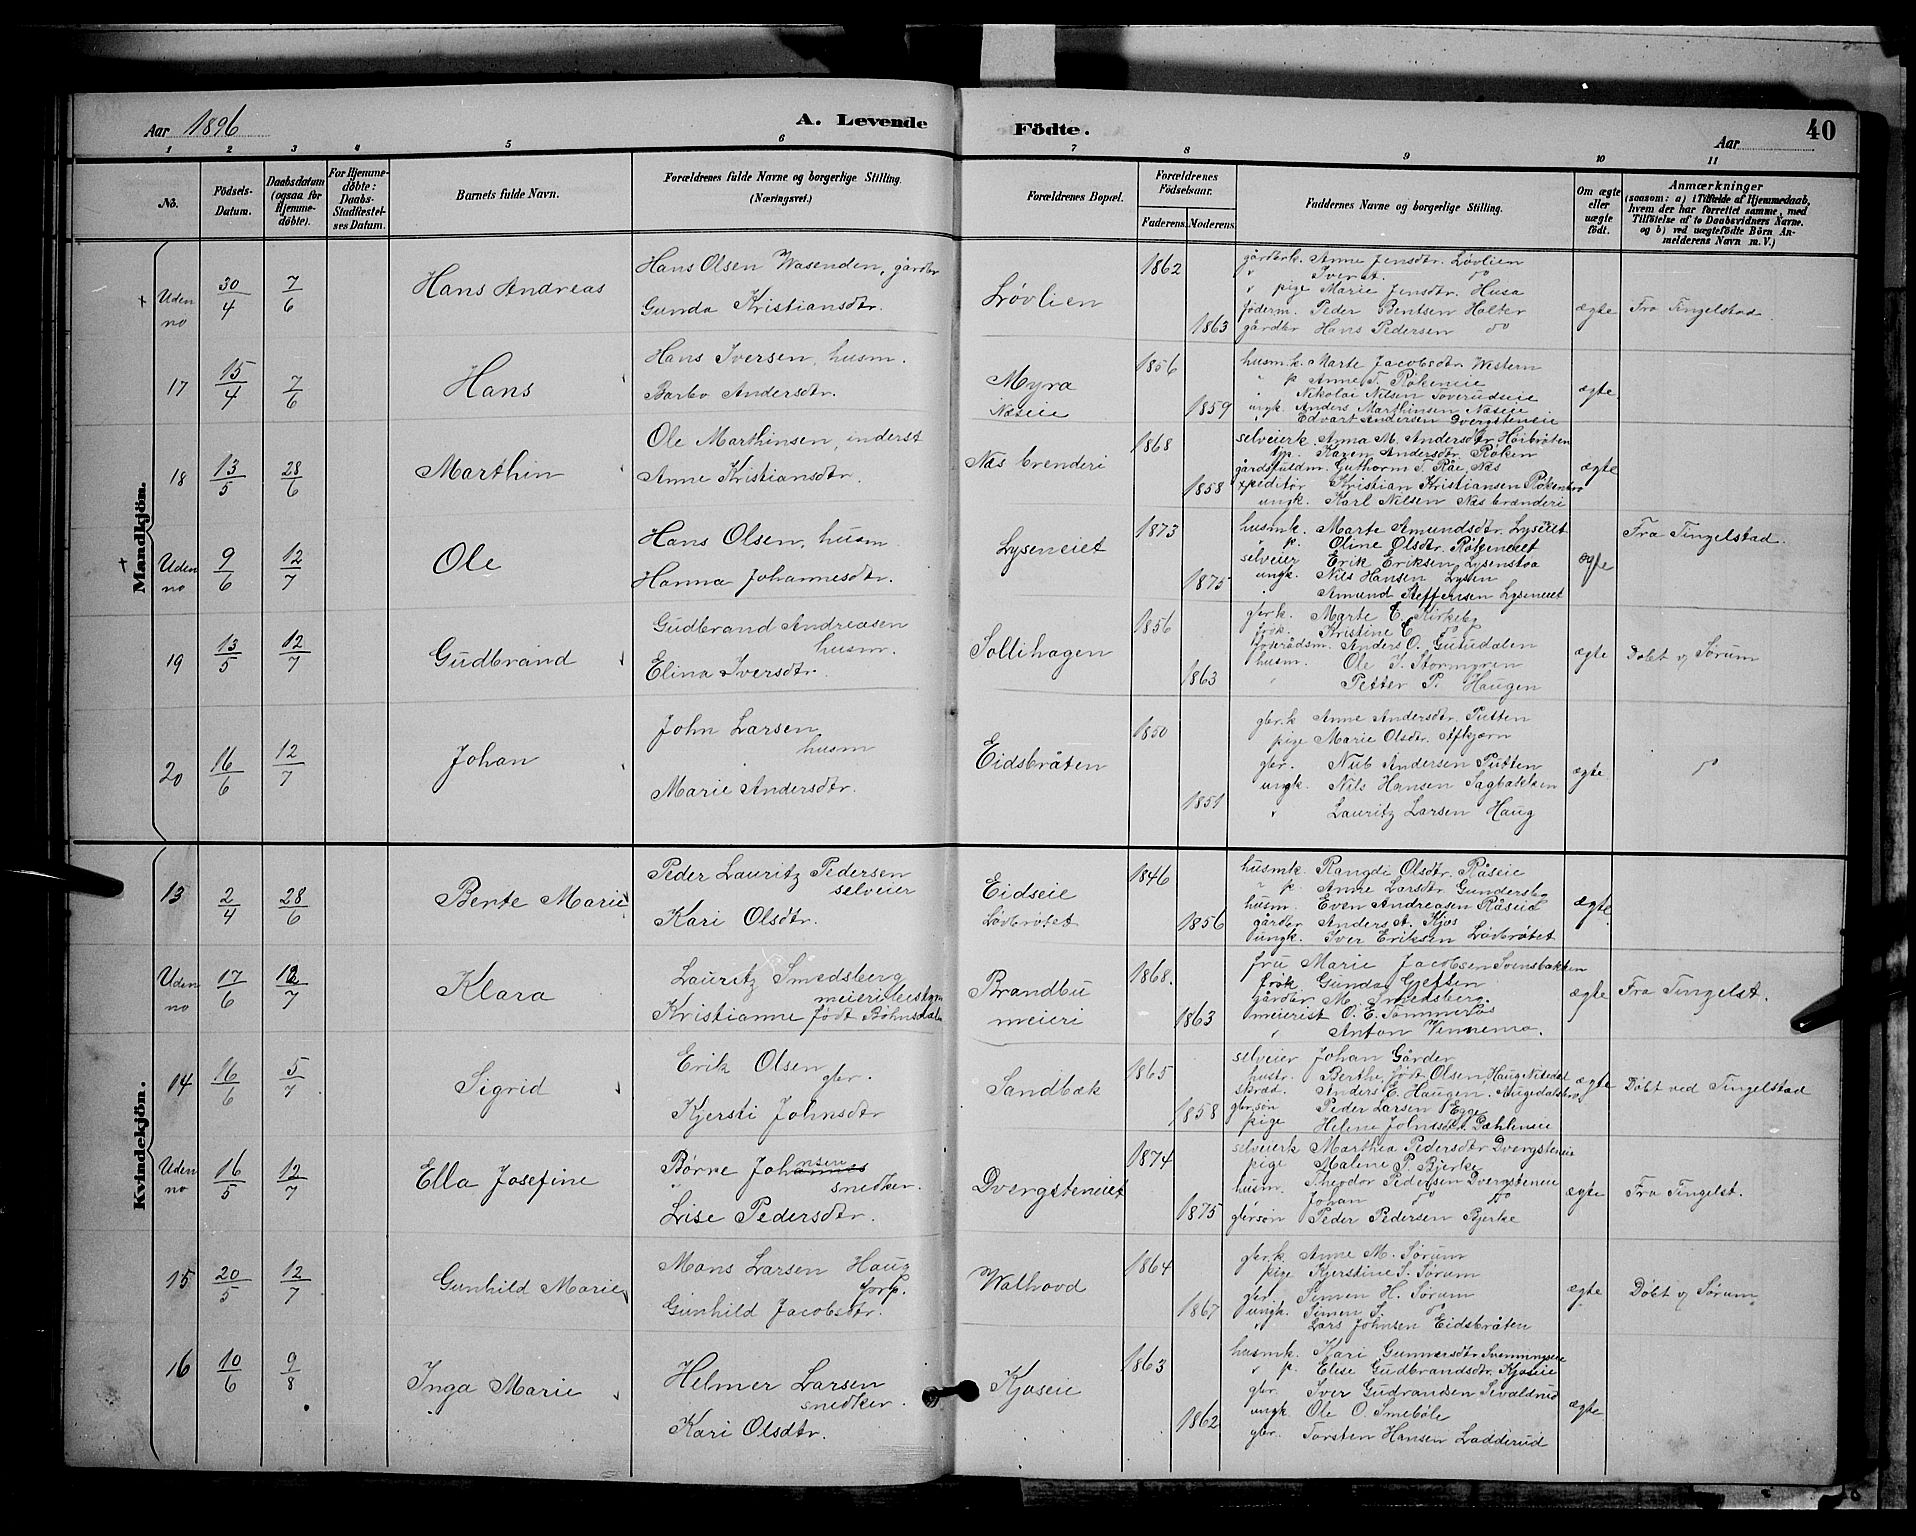 Aar 1896
A. Levende Födte.
Aar
40
1 2 3 4 5 6 7 8 9 10 11
No.
Födsels-Datum.
Daabsdatum (ogsaa for Hjemmedöbte).
For Hjemmedöbte: Daabs-Stadfæstelses Datum.
Barnets fulde Navn.
Forældrenes fulde Navne og borgerlige Stilling. (Næringsvei.)
Forældrenes Bopæl.
Forældrenes Födselsaar.
Faderens. Moderens.
Faddernes Navne og borgerlige Stilling.
Om ægte eller uægte födt.
Anmærkninger (saasom: a) i Tilfælde af Hjemmedaab, hvem der har forrettet samme, med Tilföielse af to Daabsvidners Navne. og b) ved uægtefödte Börn Anmelderens Navn m. V.)
Mandkjön.
Uden no 30/4 7/6 Hans Andreas
Hans Olsen Wasenden, gårdbr
Gunda Kristiansdtr.
Løvlien 1862 1863
gårdbrk. Anne Jensdtr. Løvlien
" Iver A. do
" pige Marie Jensdtr. Husa
føderm. Peder Bentsen Holter
gårdbr Hans Pedersen do
ægte Fra Tingelstad.
17 15/4 7/6 Hans
Hans Iversen, husm.
Barbo Andersdtr.
Myra Næseie 1856 1859
husm.k. Marte Jacobsdtr. Western
" p Anne T. Røkeneie
" Nikolai Nilsen Toverudseie
ungk. Anders Marthinsen Næseie
" Edvart Andersen Dvergsteneie
ægte
18 13/5 28/6 Marthin
Ole Marthinsen, inderst
Anne Kristiansdtr.
Næs brenderi 1868 1858
selveierk. Anna M. Andersdtr. Høibrøten
p. Karen Andersdtr. Røken
gårdsfuldm. Guthorm T. Råe, Næs
expeditør Kristian Kristiansen
ungk. Karl Nilsen Næs brænderi
ægte
Uden no 9/6 12/7 Ole
Hans Olsen, husm
Hanna Johannesdtr.
Lyseneiet 1873 1875
husmk. Marte Amundsdtr. Lyseiet
" p. Oline Olsdtr. Røkeneiet
selveier Erik Eriksen Lysenstøa
ungk. Nils Hansen Lysen
" Amund Steffensen Lyseneiet
ægte Fra Tingelstad.
19 13/5 12/7 Gudbrand
Gudbrand Andreasen
husm.
Elina Iversdtr.
Sollihagen 1856 1863
gbr.k. Marte E. Kirkeby
frøk. Kristine E do
føderådsm. Anders O.
husm. Ole J. Stormyren
" Petter P. Haugen
ægte Døbt v/ Sørum
20 16/6 12/7 Johan
John Larsen
husm
Marie Andersdtr.
Eidsbråten 1850 1851
gbr.k Anne Andersdtr. Putten
pige Marie Olsdtr. Afkjærn
gbr. Nub Andersen Putten
ungk. Nils Hansen Sagbakken
" Lauritz Larsen Haug
ægte do
Kvindekjön.
13 2/4 28/6 Bente Marie
Peder Lauritz Pedersen
selveier
Kari Olsdtr.
Eidseie Løvbrøtet 1846 1856
husmk. Rangdi Olsdtr. Råseie
" p. Anne Larsdtr. Gundersby
husm. Even Andreasen Råseie
gårdbr Anders A. Kjos
ungk. Iver Eriksen Løvbrøtet
ægte
Uden no 17/6 12/7 Klara
Lauritz Smedsberg
meieribestyrer
Kristianne født Bohnsdal
Brandbu meieri 1868. 1863
fru Marie Jacobsen Svensbakken
frøk Gunda Gjefsen
gårdbr M. Smedsberg.
meierist O. E. Sommeraas
" Anton Vinnemo.
ægte Fra Tingelst.
14 16/6 5/7 Sigrid
Erik Olsen
gbr.
Kjersti Johnsdtr
Sandbæk 1865 1858
selveier Johan Gårder
hustr. Berthe, født Olsen, Hauge Nitedal
skræd. Anders E. Haugen.
gbrsøn Peder Larsen Egge
pige Helene Johnsdtr. Dæhleneie
ægte Døbt ved Tingelstad
Uden no 16/5 12/7 Ella Josefine
Børre Johannes nsen
snedker.
Lise Pedersdtr.
Dvergsteneiet 1874 1875
selveierk Marthea Pedersdtr Dvergsteneie
pige Malene P. Bjerke
husm. Theodor Pedersen Dvergsteneie
Johan do do
gbrsøn Peder Pedersen Bjerke
ægte Fra Tingelst.
15 20/5 12/7 Gunhild Marie
Mons Larsen Haug
Gunhild Jacobsdtr.
Walhovd 1864 1867
gbr.k. Anne M. Sørum
pige Kjerstine S. Sørum
gbr. Simen H. Sørum
ungk. Simen S. do
" Lars Johnsen Eidsbråten
ægte Døbt v/ Sørum
16 10/6 9/8 Inga Marie
Helmer Larsen
snedker.
Kari Olsdtr.
Kjoseie 1863 1862
husmk. Kari Gunnersdtr
" p. Elise Gudbrandsdtr. Kjoseie
gbr. Iver Gudransen Sivaldrud
ungk. Ole O. Smebøle
gbr. Torsten Hansen Ladderud
ægte